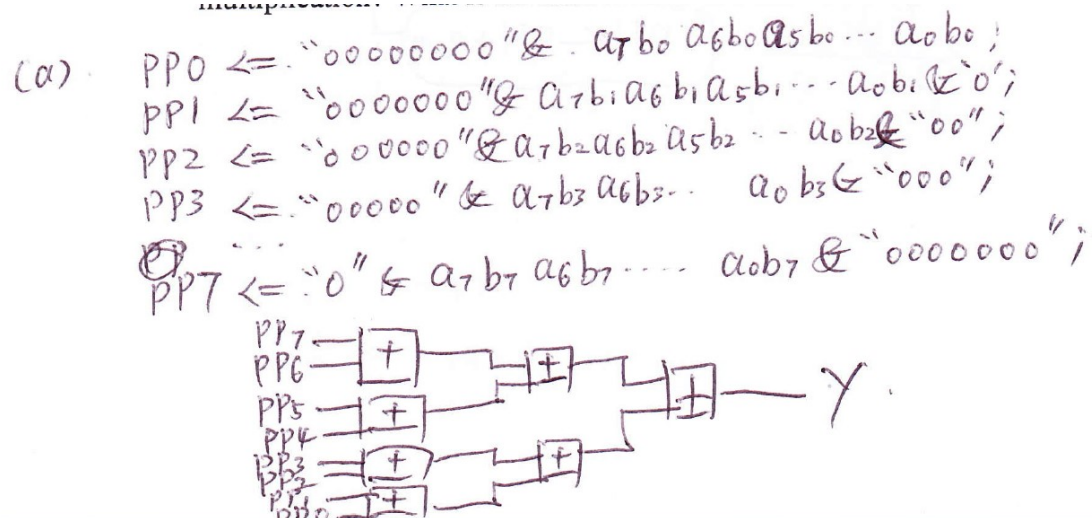 multiplication.
(a) PP0 <= "00000000" & a7b0 a6b0 a5b0 ... a0b0 ;
PP1 <= "0000000" & a7b1 a6b1 a5b1 ... a0b1 & '0' ;
PP2 <= "000000" & a7b2 a6b2 a5b2 ... a0b2 & "00" ;
PP3 <= "00000" & a7b3 a6b3 ... a0b3 & "000" ;
...
PP7 <= "0" & a7b7 a6b7 .... a0b7 & "0000000" ;
PP7
+
PP6
+
+
Y
PP5
+
PP4
PP3
+
+
PP2
PP1
+
PP0